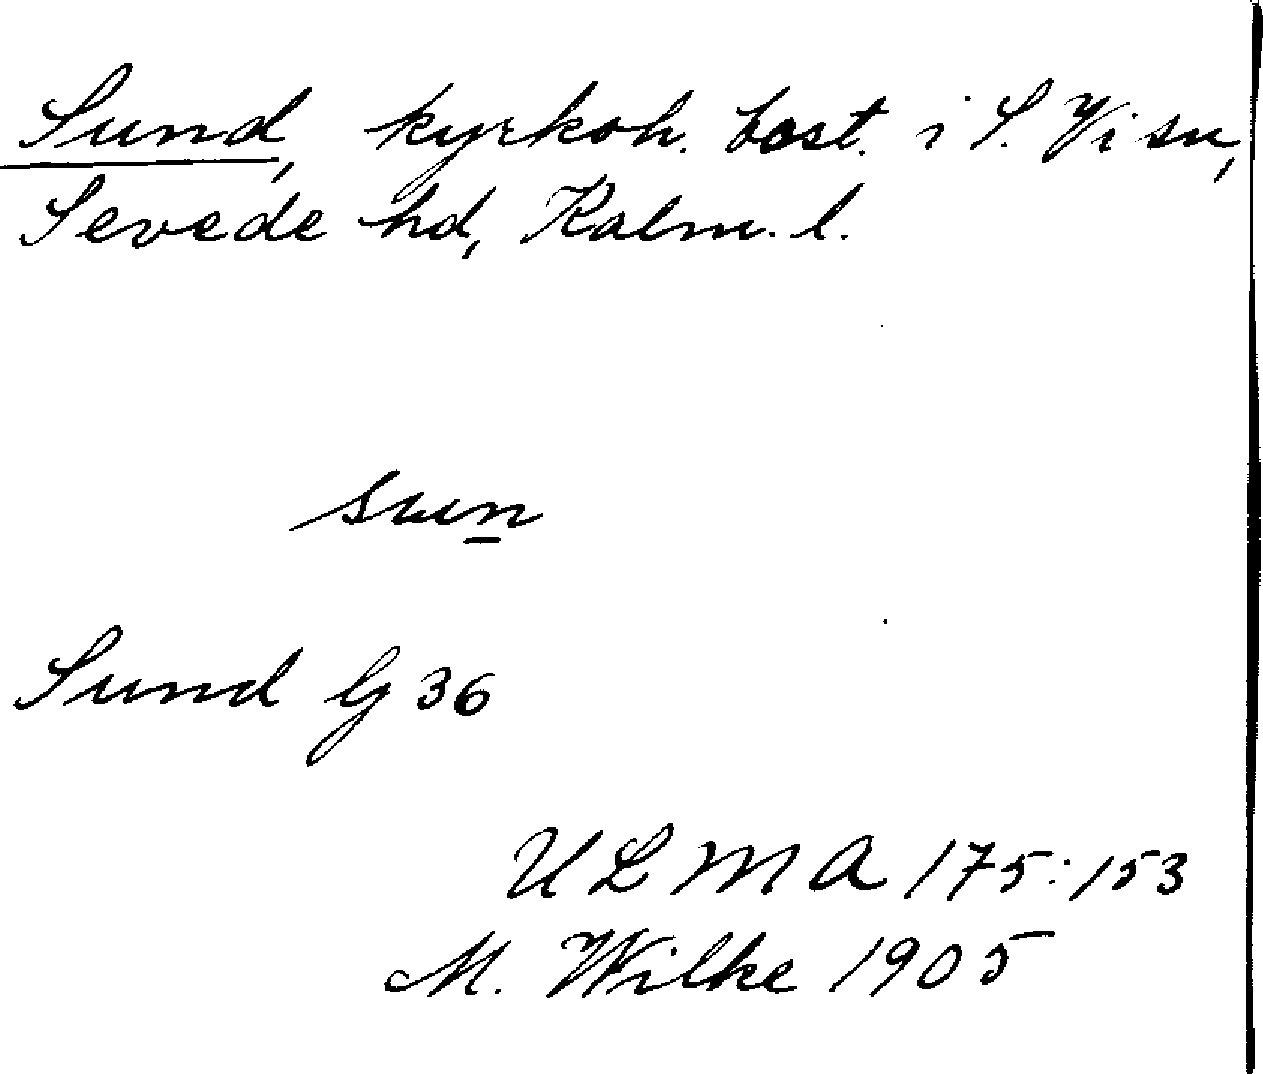 Sund, kyrkoh. bost. i S. Vi sn,
Sevede hd, Kalm. l.
sun
Sund G 36
ULMA 175:153
M. Wilke 1905